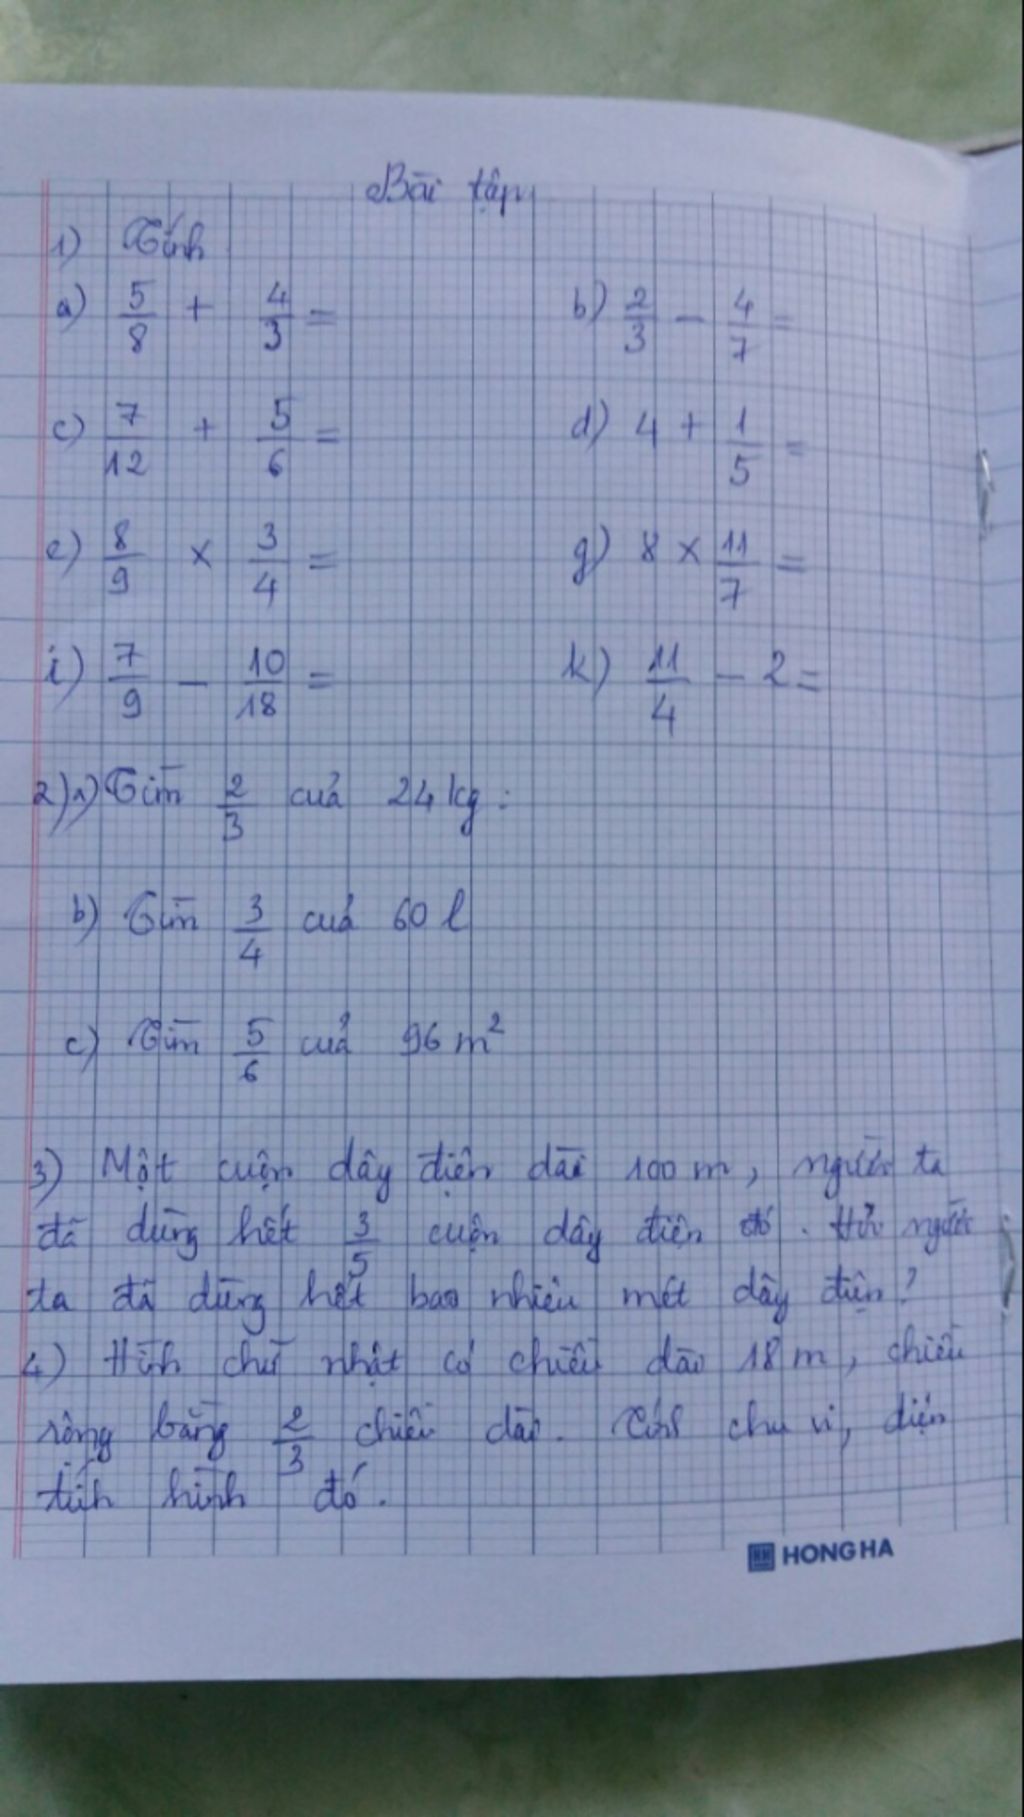 Bài tập
1) Tính
a) 5/8 + 4/3 = b) 2/3 - 4/7 =
c) 7/12 + 5/6 = d) 4 + 1/5 =
e) 8/9 × 3/4 = g) 8 × 11/7 =
i) 7/9 - 10/18 = k) 11/4 - 2 =
2) a) Tìm 2/3 của 24 kg :
b) Tìm 3/4 của 60 l
c) Tìm 5/6 của 96 m²
3) Một cuộn dây điện dài 100 m, người ta
đã dùng hết 3/5 cuộn dây điện đó. Hỏi người
ta đã dùng hết bao nhiêu mét dây điện?
4) Hình chữ nhật có chiều dài 18 m, chiều
rộng bằng 2/3 chiều dài. Tính chu vi, diện
tích hình đó.
HH HONG HA